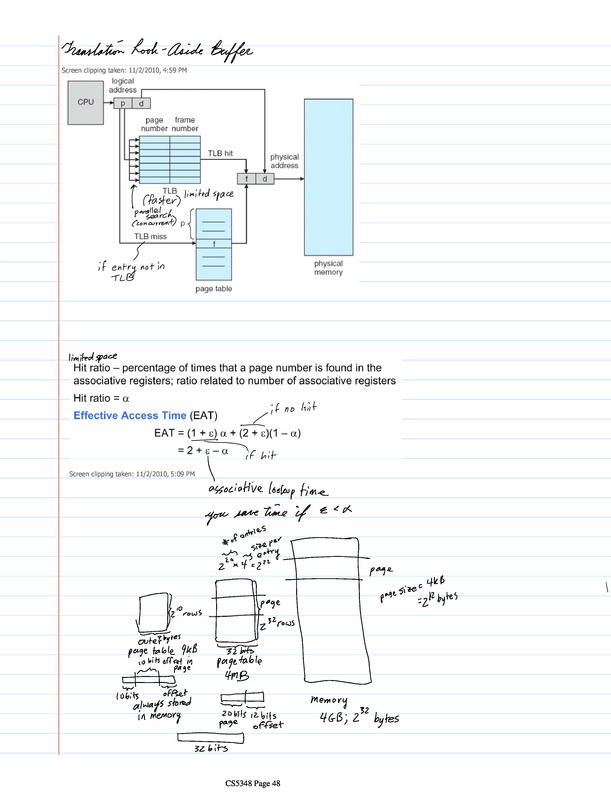 Translation Look-Aside Buffer
Screen clipping taken: 11/2/2010, 4:59 PM
logical
address
CPU
p d
page number
frame number
TLB hit
physical
address
f d
TLB
(faster) limited space
parallel
search
(concurrent)
p
TLB miss
f
if entry not in
TLB
page table
physical
memory
limited space
Hit ratio – percentage of times that a page number is found in the
associative registers; ratio related to number of associative registers
Hit ratio = α
if no hit
Effective Access Time (EAT)
EAT = (1 + ε) α + (2 + ε)(1 – α)
= 2 + ε – α
if hit
Screen clipping taken: 11/2/2010, 5:09 PM
associative lookup time
you save time if ε < α
# of entries
size per
entry
2^20 × 4 = 2^22
page
page size = 4kB
= 2^12 bytes
2^10 rows
page
2^32 rows
page table 4kB
32 bits
page table
4MB
10 bits offset in
page
10 bits
offset
always stored
in memory
20 bits
page
12 bits
offset
32 bits
memory
4GB; 2^32 bytes
CS5348 Page 48